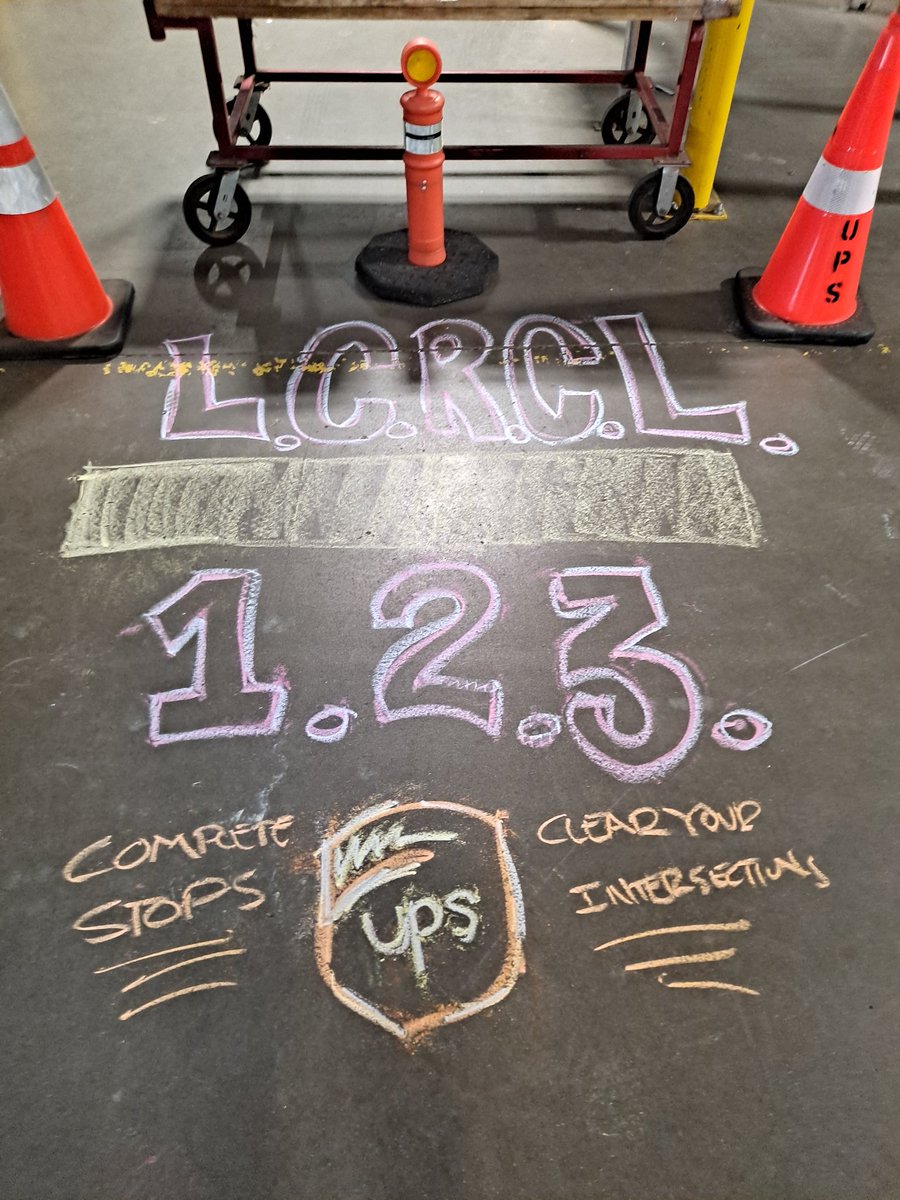 UPS
L.C.R.C.L.
1.2.3.
COMPLETE
STOPS
ups
CLEAR YOUR
INTERSECTIONS